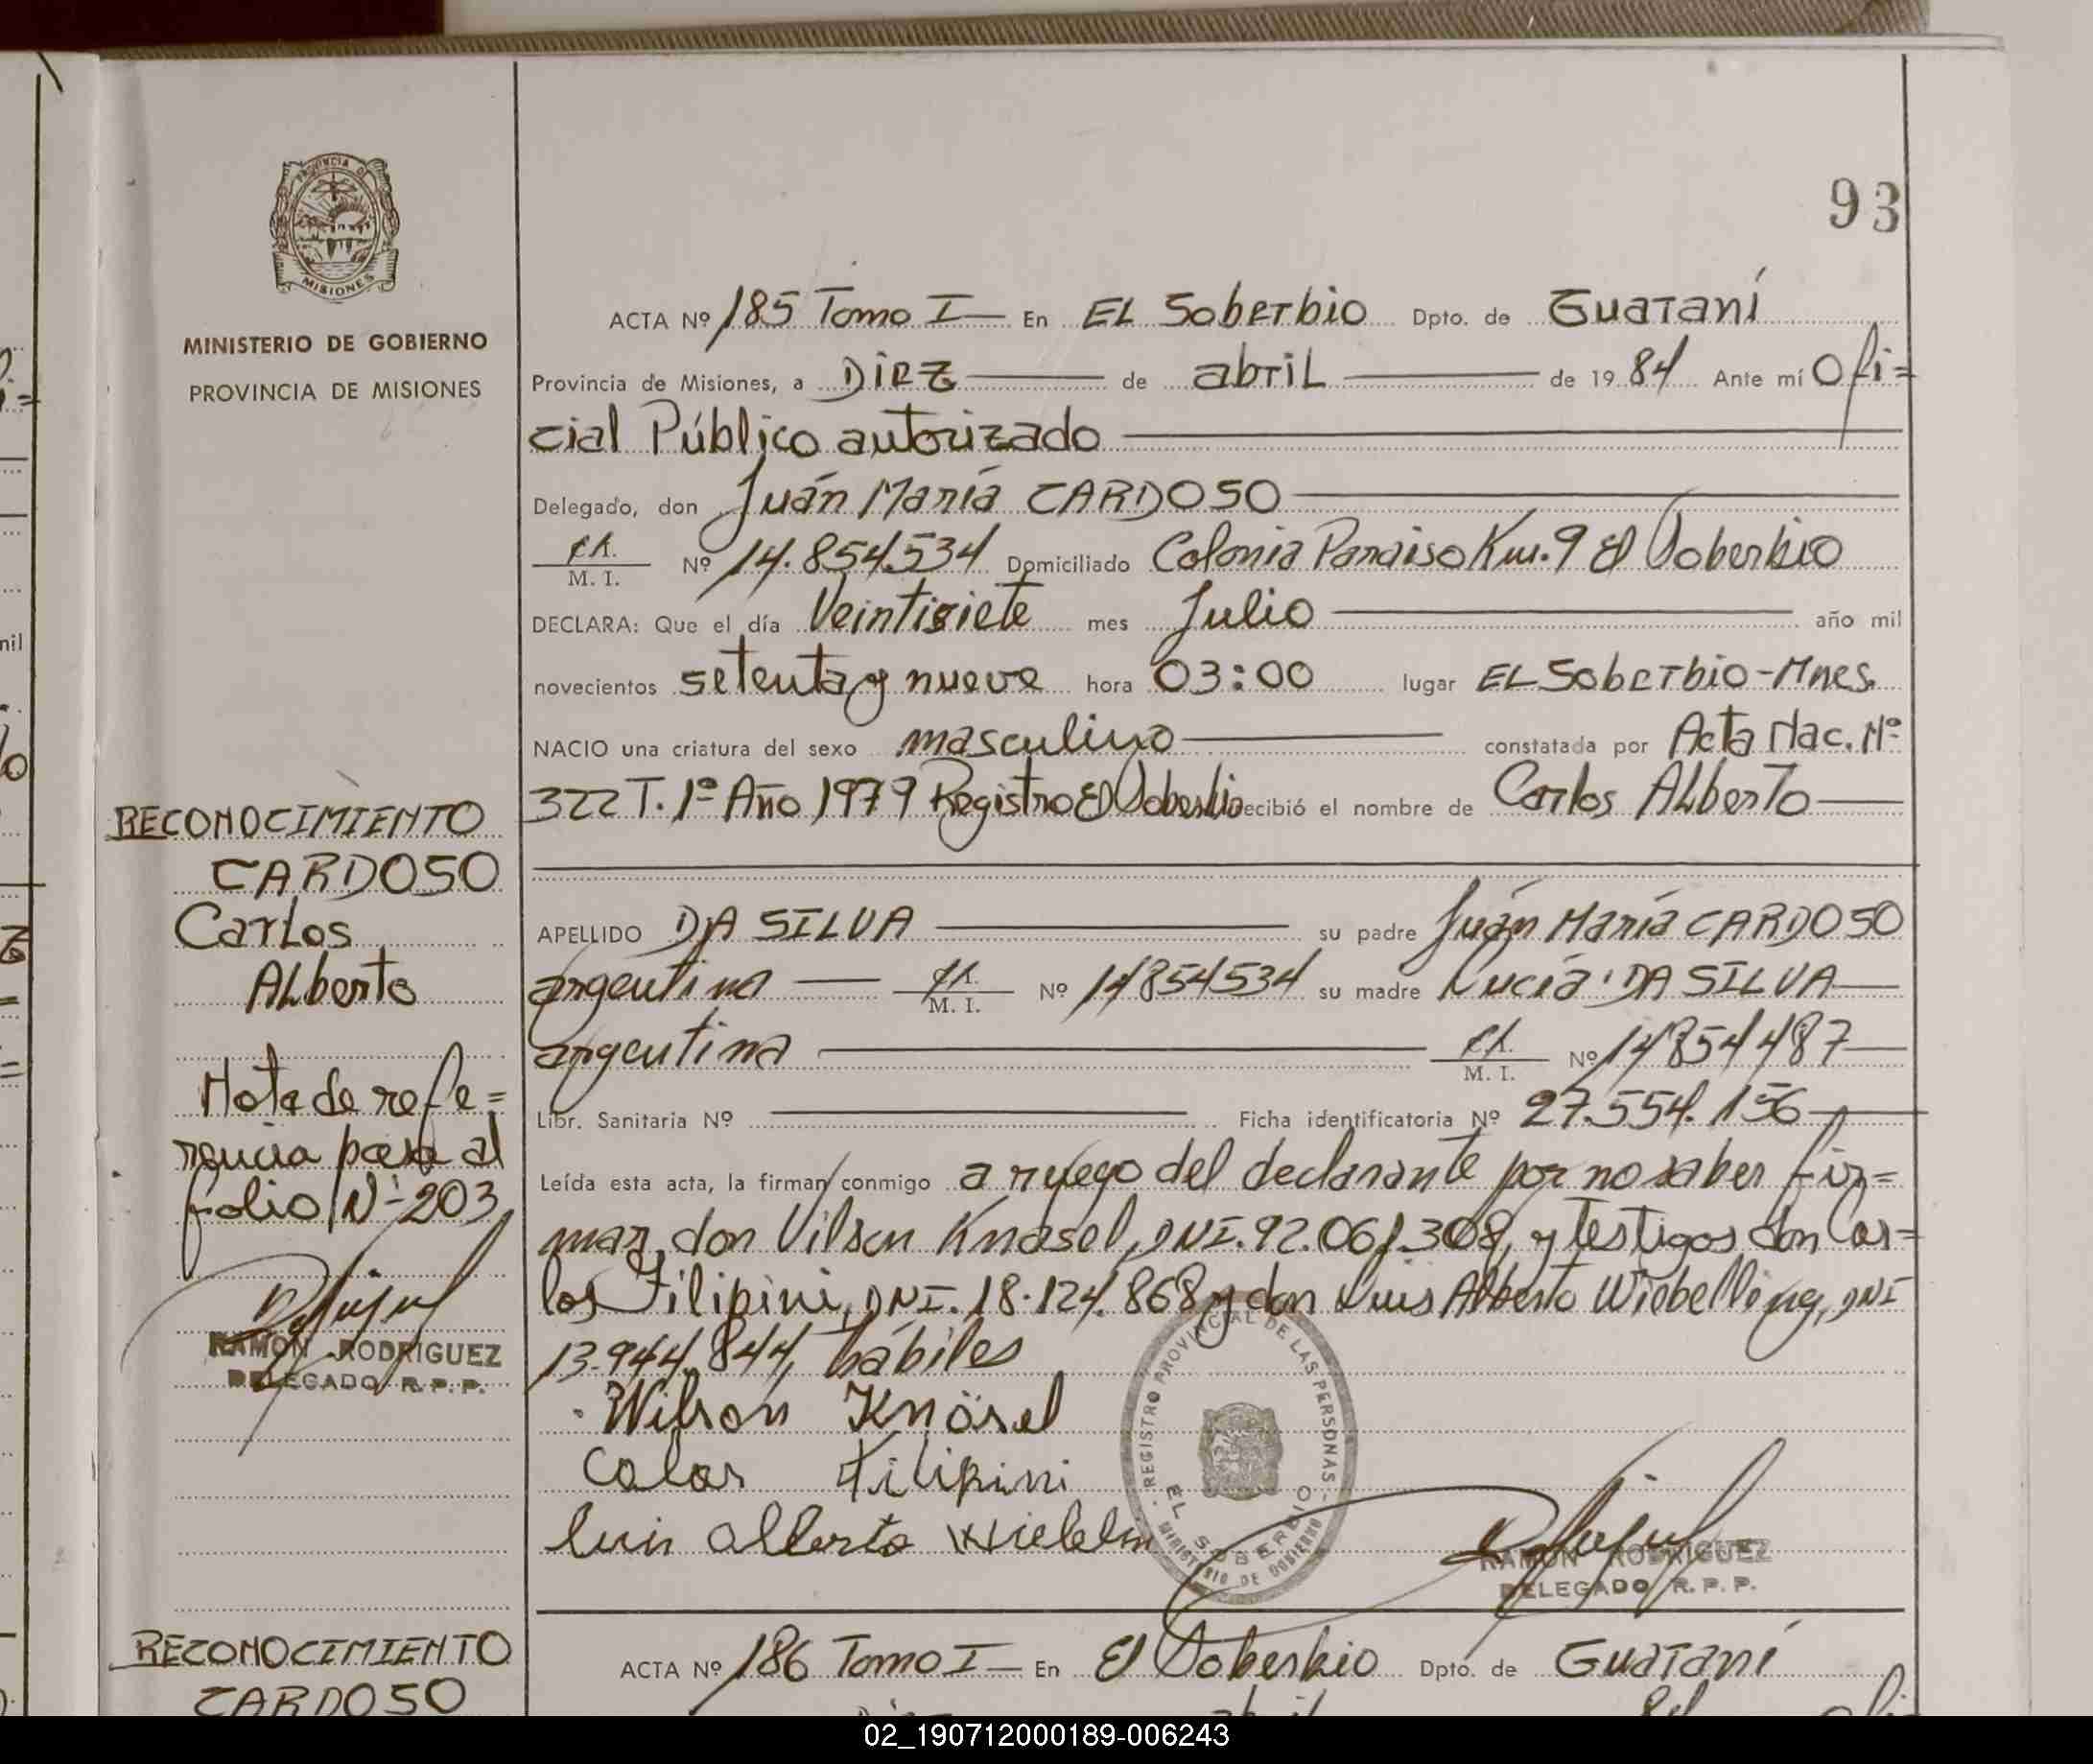 93
PROVINCIA DE
MISIONES
MINISTERIO DE GOBIERNO
PROVINCIA DE MISIONES
ACTA Nº 185 Tomo I En EL Soberbio Dpto. de Guaraní
Provincia de Misiones, a Diez de abril de 1984 Ante mí Ofi=
cial Público autorizado
Delegado, don Juán María CARDOSO
M. I. Nº 14.854.534 Domiciliado Colonia Paraiso Km. 9 El Soberbio
DECLARA: Que el día Veintisiete mes Julio año mil
novecientos setenta y nueve hora 03:00 lugar EL Soberbio-Mnes.
NACIO una criatura del sexo masculino constatada por Acta Nac. Nº
322 T. 1º Año 1979 Registro El Soberbio recibió el nombre de Carlos ALberto
RECONOCIMIENTO
CARDOSO
Carlos
ALberto
APELLIDO DA SILVA su padre Juán María CARDOSO
argentina M. I. Nº 14854534 su madre Lucía DA SILVA
argentina M. I. Nº 14854487
Libr. Sanitaria Nº Ficha identificatoria Nº 27.554.156
Nota de refe=
rencia pasa al
folio Nº 203
RAMON RODRIGUEZ
DELEGADO R. P. P.
Leída esta acta, la firman conmigo a ruego del declarante por no saber fir=
mar, don Vilson Knasel, DNI. 92.061.308, y testigos don Car=
los Filipini, DNI. 18.124.868 y don Luis Alberto Wiebelling, DNI
13.944.844, hábiles
Wilson Knösel
Calos Filipini
luis alberto
REGISTRO PROVINCIAL DE LAS PERSONAS
EL SOBERBIO
MINISTERIO DE GOBIERNO
RAMON RODRIGUEZ
DELEGADO R. P. P.
RECONOCIMIENTO
CARDOSO
ACTA Nº 186 Tomo I En El Soberbio Dpto. de Guaraní
02_190712000189-006243